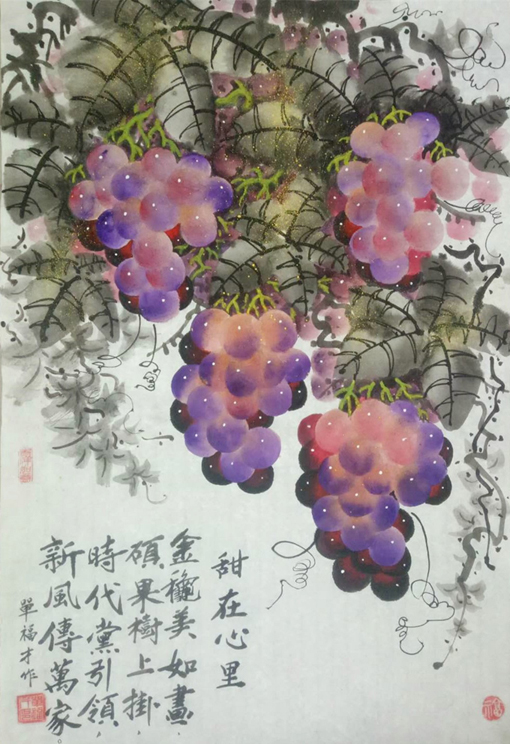 甜在心里
金龝美如畫，
碩果樹上掛，
時代黨引領，
新風傳萬家。
單福才作